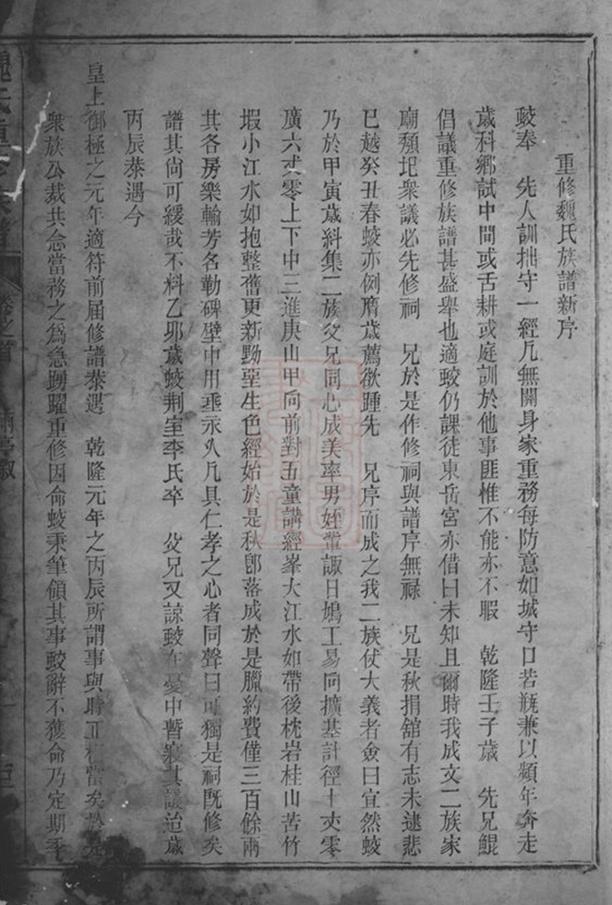 重修魏氏族譜新序
蛟奉　先人訓拙守一經凡無關身家重務每防意如城守口若瓶兼以頻年奔走
歲科鄉試中間或舌耕或庭訓於他事匪惟不能亦不暇　乾隆壬子歲　先兄鯤
倡議重修族譜甚盛舉也適蛟仍課徒東岳宮亦借曰未知且爾時我成文二族家
廟頹圯衆議必先修祠　兄於是作修祠與譜序無祿　兄是秋捐舘有志未逮悲
巳越癸丑春蛟亦例膺歲薦欲踵先　兄序而成之我二族仗大義者僉曰宜然蛟
乃於甲寅歲糾集二族父兄同心成美率男姪輩諏日鳩工易向擴基計徑十丈零
廣六丈零上下中三進庚山甲向前對五童講經峯大江水如帶後枕岩桂山苦竹
塅小江水如抱整舊更新黝堊生色經始於是秋卽落成於是臘約費僅三百餘兩
其各房樂輸芳名勒碑壁中用垂永久凡具仁孝之心者同聲曰可獨是祠旣修矣
譜其尚可緩哉不料乙卯歲蛟荆室李氏卒　父兄又諒蛟在憂中暫寢其議迨歲
丙辰恭遇今
皇上御極之元年適符前届修譜恭遇　乾隆元年之丙辰所謂事與時正相當矣於是
衆族公裁共念當務之爲急踴躍重修因命蛟秉筆領其事蛟辭不獲命乃定期季
卷之首